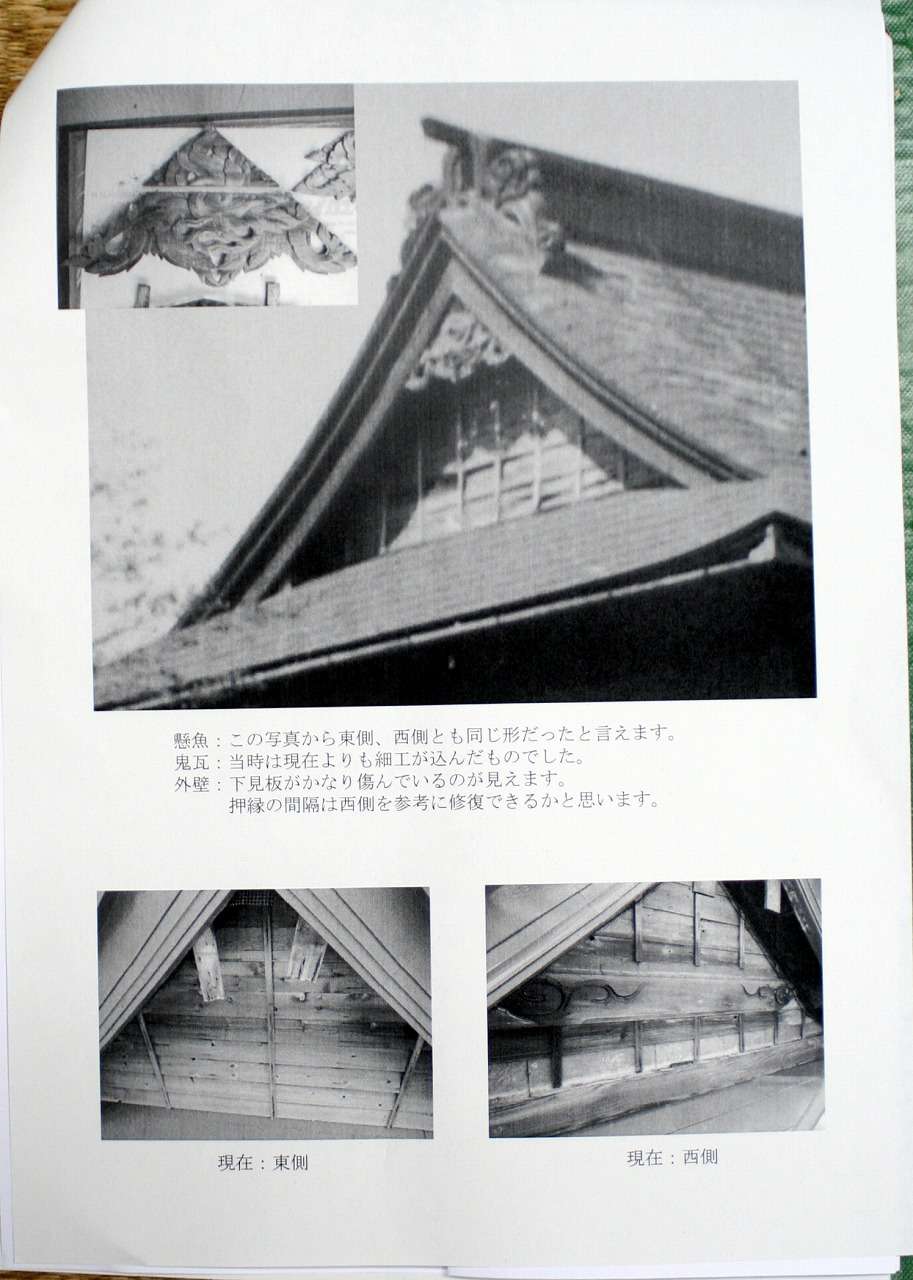 懸魚：この写真から東側、西側とも同じ形だったと言えます。
鬼瓦：当時は現在よりも細工が込んだものでした。
外壁：下見板がかなり傷んでいるのが見えます。
押縁の間隔は西側を参考に修復できるかと思います。
現在：東側
現在：西側